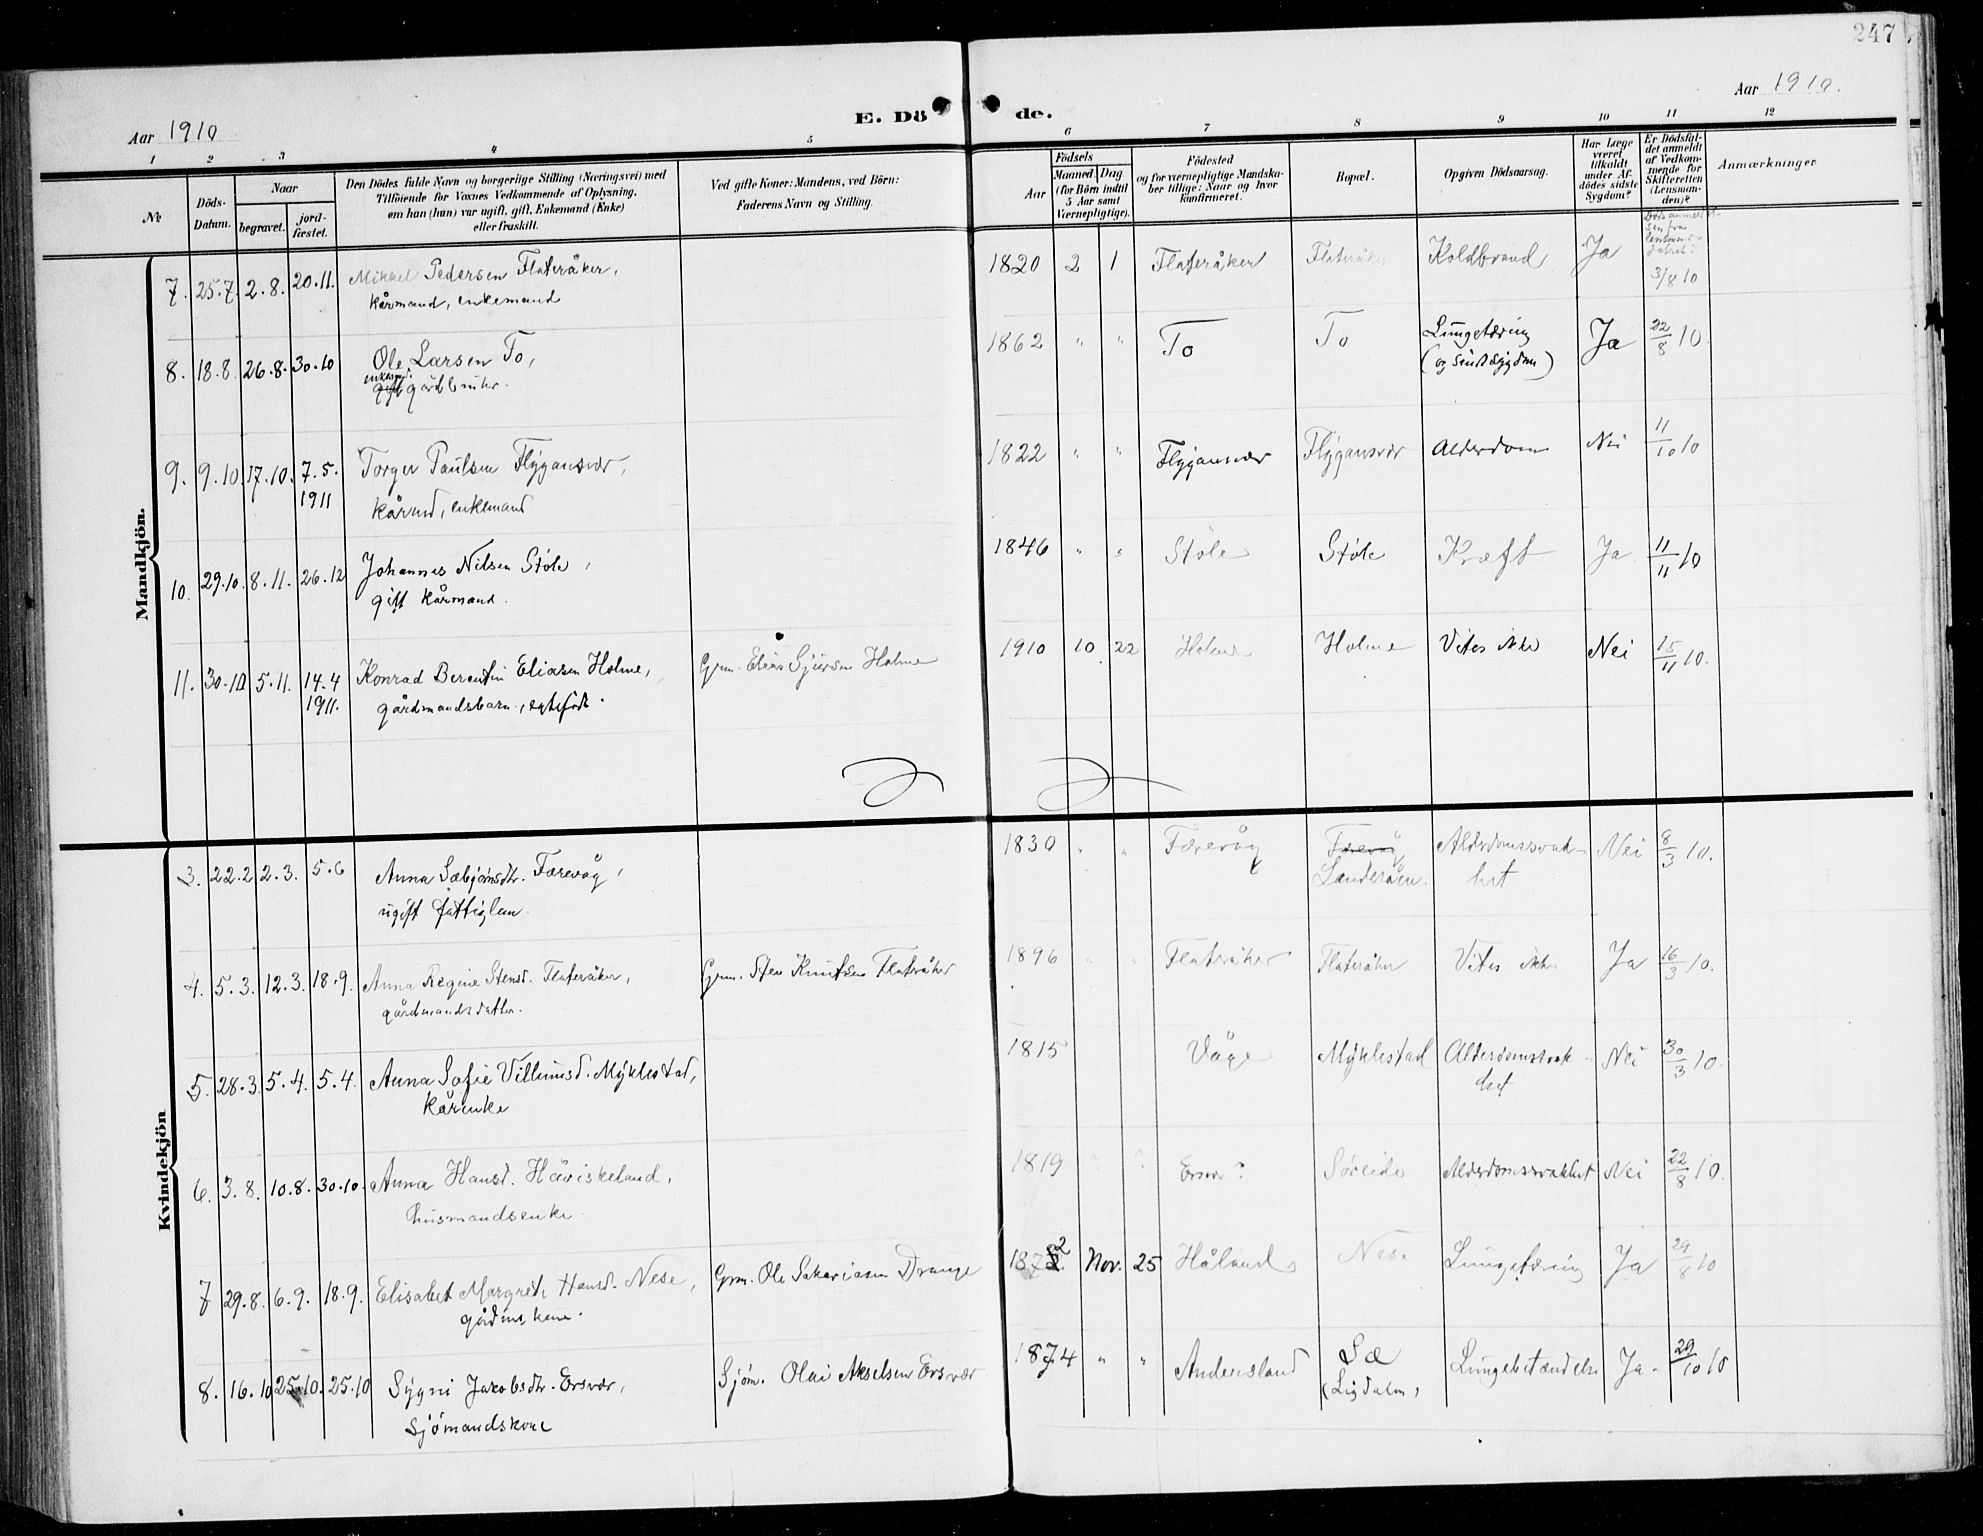 247
Aar 1910
E. Dö
de.
Aar 1910.
1 2 3 4 5 6 7 8 9 10 11 12
No
Döds-
Datum.
Naar
begravet.
jord-
fæstet.
Den Dödes fulde Navn og borgerlige Stilling (Næringsvei) med
Tilföiende for Voxnes Vedkommende af Oplysning,
om han (hun) var ugift, gift, Enkemand (Enke)
eller fraskilt.
Ved gifte Koner: Mandens, ved Börn:
Faderens Navn og Stilling.
Aar
Födsels
Maaned. Dag
(for Börn indtil
5 Aar samt
Værnepligtige).
Födested
og for værnepligtige Mandska-
ber tillige: Naar og hvor
konfirmeret.
Bopæl.
Opgiven Dödsaarsag.
Har Læge
været
tilkaldt
under Af-
dödes sidste
Sygdom?
Er Dödsfal-
det anmeldt
af Vedkom-
mende for
Skifteretten
(Lensman-
den)?
Anmærkninger
Mandkjön.
7. 25.7. 2.8. 20.11. Mikkel Pedersen Flateråker, 1820 2 1 Flateråker Flateråker Koldbrand Ja 3/8 10
kårmand, enkemand
8. 18.8. 26.8. 30.10 Ole Larsen To, 1862 " " To To Lungetæring Ja 22/8 10.
enkem.
gift gårdbruker. (og sindssygdom)
9. 9.10. 17.10. 7.5. Torger Paulsen Flygansvær, 1822 " " Flygansvær Flygansvær Alderdom Nei 11/10 10
1911
kårmd, enkemand
10. 29.10. 8.11. 26.12 Johannes Nilsen Støle, 1846 " " Støle Støle Kræft Ja 11/11 10
gift kårmand.
11. 30.10 5.11. 14.4 Konrad Berentin Eliasen Holme, Grm. Elias Sjursen Holme 1910 10 22 Holme Holme Vites ikke Nei 15/11 10.
1911.
gårdmandsbarn, egtefødt.
Kvindekjön
3. 22.2 2.3. 5.6 Anna Sæbjørnsdtr. Færevåg, 1830 " " Færevåg Færevåg Alderdomssvak- Nei 8/3 10.
Landeråen. het
ugift fattiglem.
4. 5.3. 12.3. 18.9. Anna Regine Stensd. Flateråker, Grm. Sten Knutsen Flateråker 1896 " " Flateråker Flateråker Vites ikke Ja 16/3 10.
gårdmandsdatter.
5. 28.3. 5.4. 5.4. Anna Sofie Villumsd. Myklestad, 1815 Våge Myklestad Alderdomssvak- Nei 30/3 10.
het
kårenke
6. 3.8. 10.8. 30.10. Anna Hansd. Håviskeland, 1819 " " Ersvær? Søreide Alderdomssvakhet Nei 22/8 10.
husmandsenke
7 29.8. 6.9. 18.9. Elisabet Margrete Hansd. Nese, Grm. Ole Sakariasen Drange 1872 Nov. 25 Håland Nese Lungetæring Ja 29/8 10
gårdmskone.
8. 16.10 25.10. 25.10 Sygni Jakobsdtr. Ersvær, Sjøm. Olai Akselsen Ersvær 1874 " " Andersland Sæ Lungebetændelse Ja. 29/10 10
sjømandskone